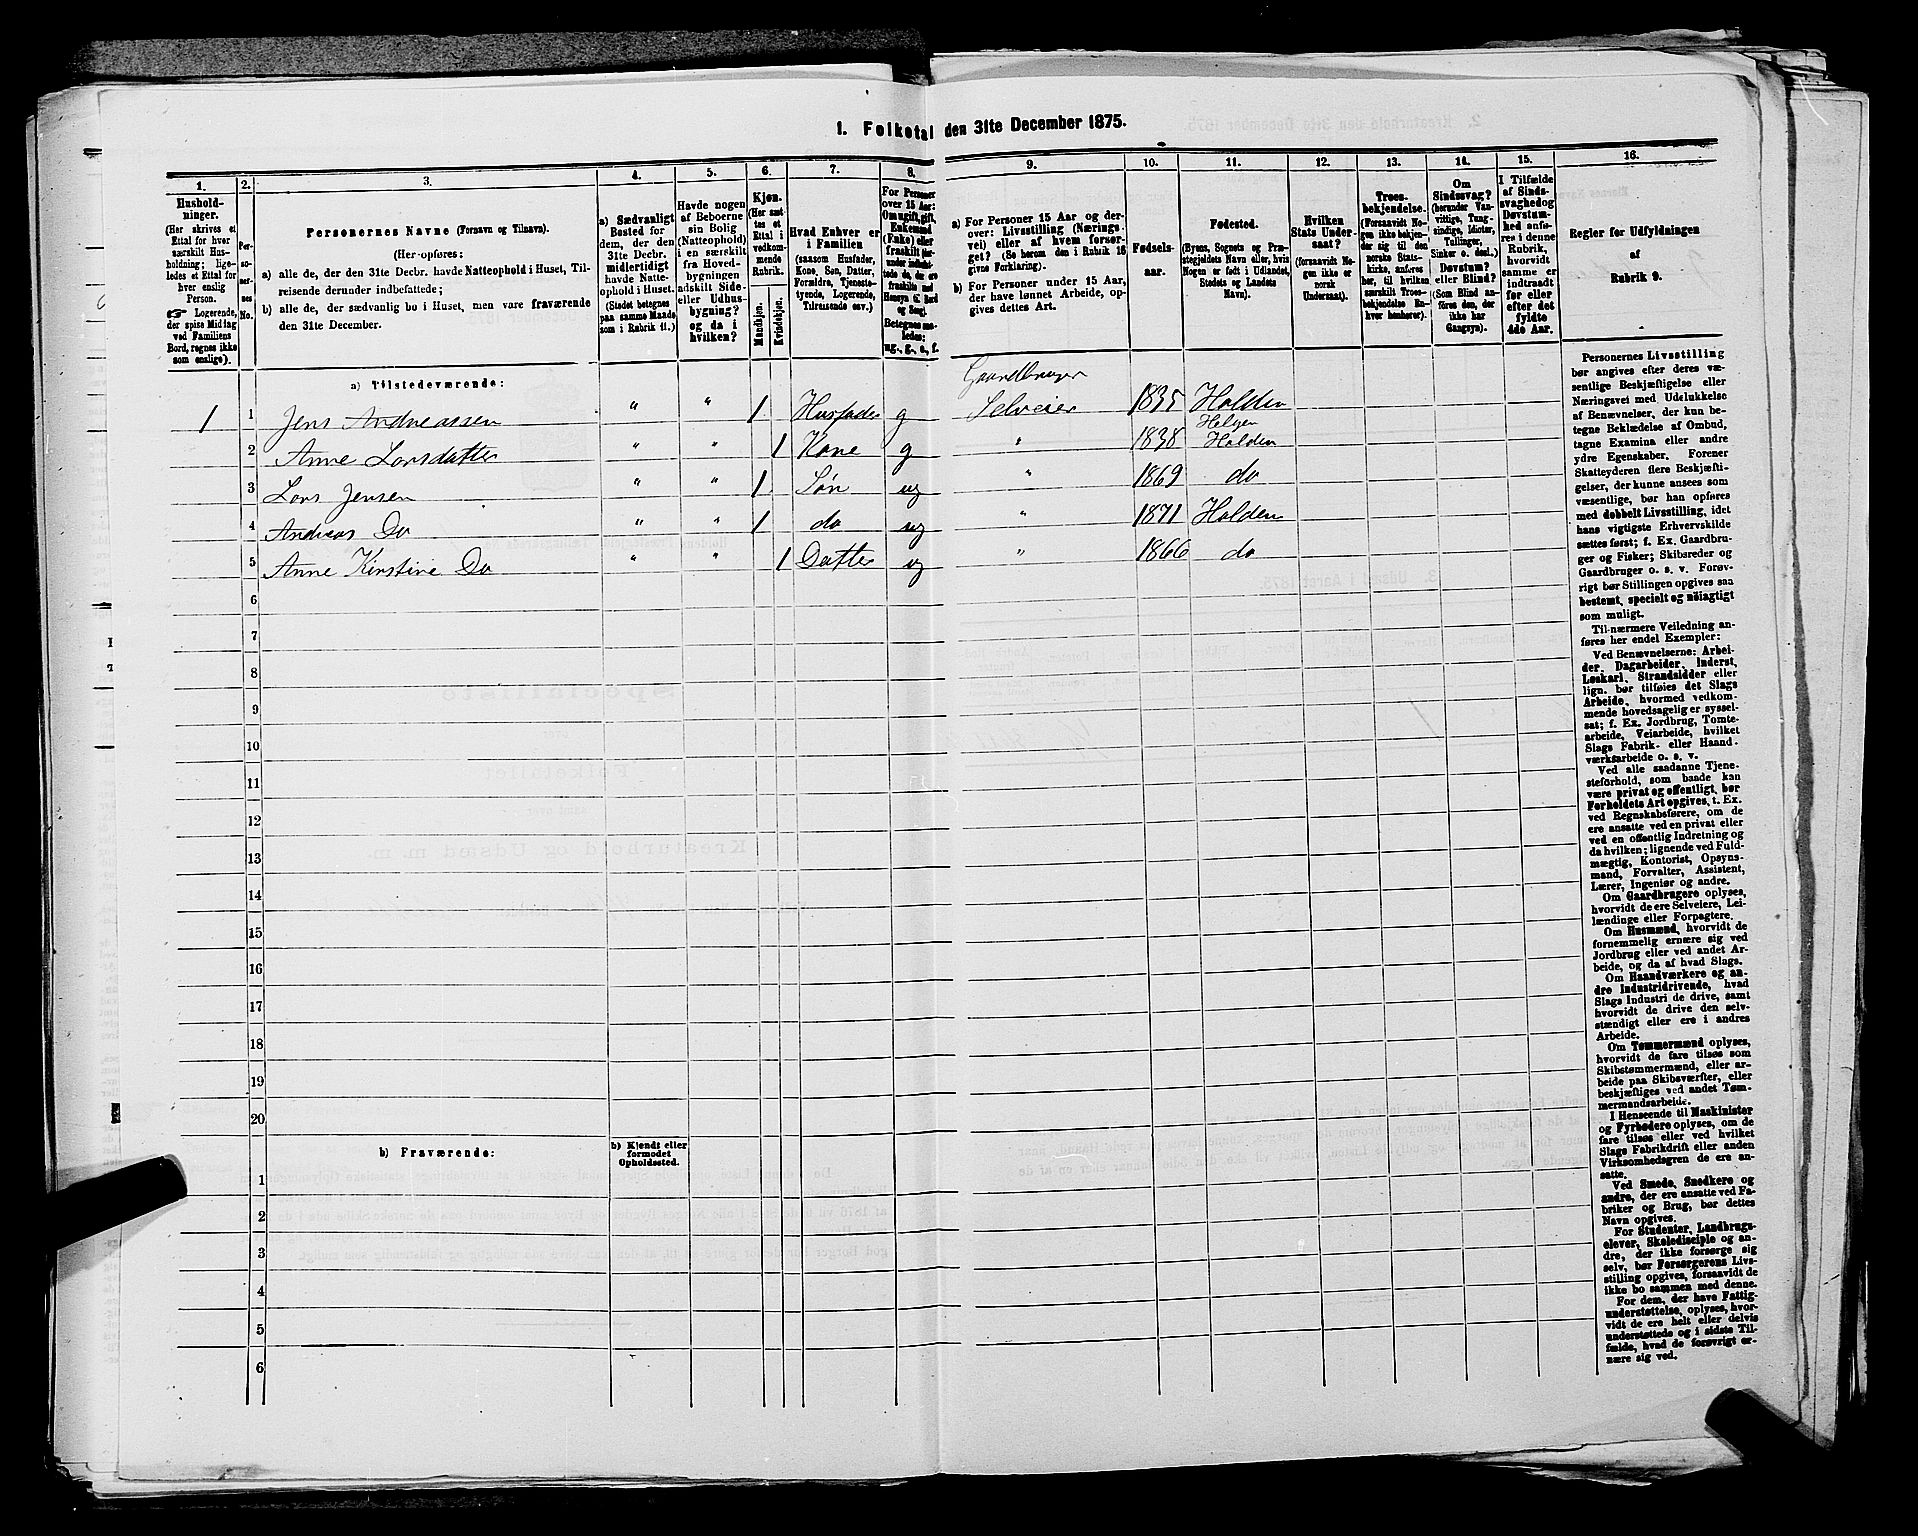 1. Folketal den 31te December 1875.
1. 2. 3. 4. 5. 6. 7. 8. 9. 10. 11. 12. 13. 14. 15. 16.
Hushold-
ninger.
(Her skrives et
Ettal for hver
særskilt Hus-
holdning; lige-
ledes et Ettal for
hver enslig
Person.
☞ Logerende,
der spise Middag
ved Familiens
Bord, regnes ikke
som enslige).
Per-
so-
ner-
nes
No.
Personernes Navne (Fornavn og Tilnavn).
(Her opføres:
a) alle de, der den 31te Decbr. havde Natteophold i Huset, Til-
reisende derunder indbefattede;
b) alle de, der sædvanlig bo i Huset, men vare fraværende
den 31te December.
a) Sædvanligt
Bosted for
dem, der den
31te Decbr.
midlertidigt
havde Natte-
ophold i Huset.
(Stedet betegnes
paa samme Maade
som i Rubrik 11.)
Havde nogen
af Beboerne
sin Bolig
(Natteophold)
i en særskilt
fra Hoved-
bygningen
adskilt Side-
eller Udhus-
bygning?
og da i
hvilken?
Kjøn.
(Her sæt-
tes et
Ettal i
vedkom-
mende
Rubrik.
Mandkjøn.
Kvindekjøn.
Hvad Enhver er
i Familien
(saasom Husfader,
Kone, Søn, Datter,
Forældre, Tjeneste-
tyende, Logerende,
Tilreisende osv.)
For Personer
over 15 Aar:
Om ugift, gift,
Enkemand
(Enke) eller
fraskilt (her-
under indbefat-
tede de, der ere
fraskilte med
Hensyn til Bord
og Seng).
Betegnes saa-
ledes:
ug., g., e., f.
a) For Personer 15 Aar og der-
over: Livsstilling (Nærings-
vei) eller af hvem forsør-
get? (Se herom den i Rubrik 16
givne Forklaring).
b) For Personer under 15 Aar,
der have lønnet Arbeide, op-
gives dettes Art.
Fødsels-
aar.
Fødested.
(Byens, Sognets og Præ-
stegjeldets Navn eller, hvis
Nogen er født i Udlandet,
Stedets og Landets
Navn).
Hvilken
Stats Under-
saat?
(forsaavidt No-
gen ikke er
norsk
Undersaat).
Troes-
bekjendelse.
(Forsaavidt No-
gen ikke bekjen-
der sig til den
norske Stats-
kirke, anføres
her, til hvilken
særskilt Troes-
bekjendelse En-
hver henhører).
Om
Sindssvag?
(herunder Van-
vittige, Tung-
sindige, Idioter,
Tullinger,
Sinker o. desl.).
Døvstum?
eller Blind?
(Som Blind an-
føres den, der
ikke har
Gangsyn).
I Tilfælde
af Sinds-
svaghed og
Døvstum-
hed anfø-
res i denne
Rubrik,
hvorvidt
samme er
indtraadt
før eller
efter det
fyldte
4de Aar.
Regler for Udfyldningen
af
Rubrik 9.
a) Tilstedeværende:
Gaardbruger
1 1 Jens Andreassen " " 1 Husfader g Selveier 1835 Holden
Helgen
2 Anne Larsdatter " " 1 Kone g " 1838 Holden
3 Lars Jensen " " 1 Søn ug " 1869 do
4 Andreas Do " " 1 do ug " 1871 Holden
5 Anne Kirstine Do " " 1 Datter ug " 1866 do
6
7
8
9
10
11
12
13
14
15
16
17
18
19
20
b) Fraværende:
b) Kjendt eller
formodet
Opholdssted.
1
2
3
4
5
6
Personernes Livsstilling
bør angives efter deres væ-
sentlige Beskjæftigelse eller
Næringsvei med Udelukkelse
af Benævnelser, der kun be-
tegne Beklædelse af Ombud,
tagne Examina eller andre
ydre Egenskaber. Forener
Skatteyderen flere Beskjæfti-
gelser, der kunne ansees som
væsentlige, bør han opføres
med dobbelt Livsstilling, idet
hans vigtigste Erhvervskilde
sættes først; f. Ex. Gaardbru-
ger og Fisker; Skibsreder og
Gaardbruger o. s. v. Forøv-
rigt bør Stillingen opgives saa
bestemt, specielt og nøiagtigt
som muligt.
Til nærmere Veiledning an-
føres her endel Exempler:
Ved Benævnelserne: Arbei-
der, Dagarbeider, Inderst,
Løskarl, Strandsidder eller
lign. bør tilføies det Slags
Arbeide, hvormed vedkom-
mende hovedsagelig er syssel-
sat; f. Ex. Jordbrug, Tomte-
arbeide, Veiarbeide, hvilket
Slags Fabrik- eller Haand-
værksarbeide o. s. v.
Ved alle saadanne Tjene-
steforhold, som baade kan
være privat og offentligt, bør
Forholdets Art opgives, t. Ex.
ved Regnskabsførere, om de
ere ansatte ved en privat eller
ved en offentlig Indretning og
da hvilken; lignende ved Fuld-
mægtig, Kontorist, Opsyns-
mand, Forvalter, Assistent,
Lærer, Ingeniør og andre.
Om Gaardbrugere oplyses,
hvorvidt de ere Selveiere, Lei-
lændinge eller Forpagtere.
Om Husmænd, hvorvidt de
fornemmelig ernære sig ved
Jordbrug eller ved andet Ar-
beide, og da af hvad Slags.
Om Haandværkere og an-
dre Industridrivende, hvad
Slags Industri de drive, samt
hvorvidt de drive den selv-
stændigt eller ere i andres
Arbeide.
Om Tømmermænd oplyses,
hvorvidt de fare tilsøs som
Skibstømmermænd, eller ar-
beide paa Skibsværfter, eller
beskjæftiges ved andet Tøm-
mermandsarbeide.
I Henseende til Maskinister
og Fyrbødere oplyses, om de
fare tilsøs eller ved hvilket
Slags Fabrikdrift eller anden
Virksomhedsgren de ere an-
satte.
Ved Smede, Snedkere og
andre, der ere ansatte ved Fa-
briker og Brug, bør dettes
Navn opgives.
For Studenter, Landbrugs-
elever, Skoledisciple og an-
dre, der ikke forsørge sig
selv, bør Forsørgerens Livs-
stilling opgives, forsaavidt de
ikke bo sammen med denne.
For dem, der have Fattig-
understøttelse, oplyses, hvor-
vidt de ere helt eller delvis
understøttede og i sidste Til-
fælde, hvad de forøvrigt er-
nære sig ved.